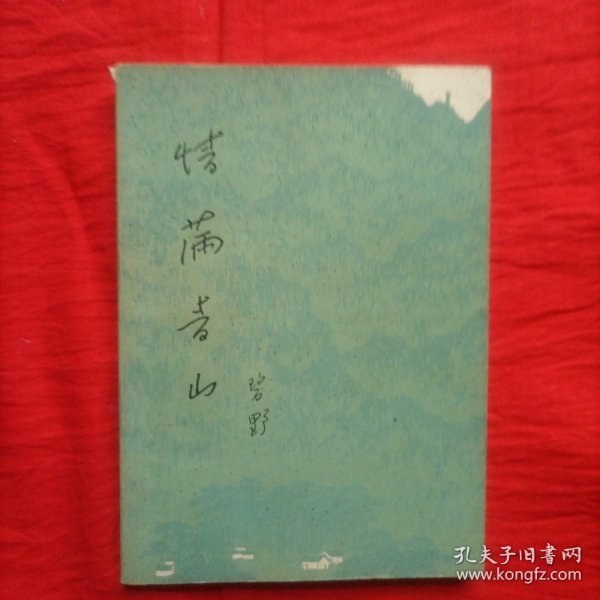 情满青山
碧野
孔夫子旧书网
www.kongfz.com